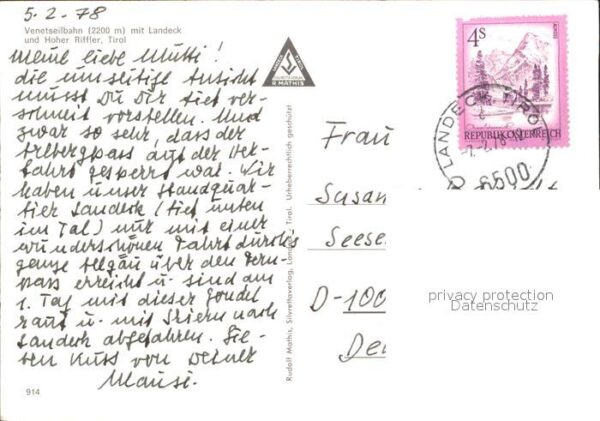 5.2.78
Venetseilbahn (2200 m) mit Landeck
und Hoher Riffler, Tirol
Meine liebe Mutti!
die umseitige Ansicht
musst Du Dir tief ver-
schneit vorstellen. Und
zwar so sehr, dass der
Arlbergpass auf der Her-
fahrt gesperrt war. Wir
haben unser Standquar-
tier Landeck (tief unten
im Tal) nur mit einer
wunderschönen Fahrt durchs
ganze Allgäu über den Fern-
pass erreicht u. sind am
1. Tag mit dieser Gondel
rauf u. mit Skiern nach
Landeck abgefahren. Lie-
ben Kuss von Deiner
Mausi.
914
R. MATHIS
Rudolf Mathis, Silvrettaverlag, Landeck - Tirol. Urheberrechtlich geschützt
4S
REPUBLIK ÖSTERREICH
LANDECK, TIROL
6500
Frau
Susan
Seese
D-100
De
privacy protection
Datenschutz